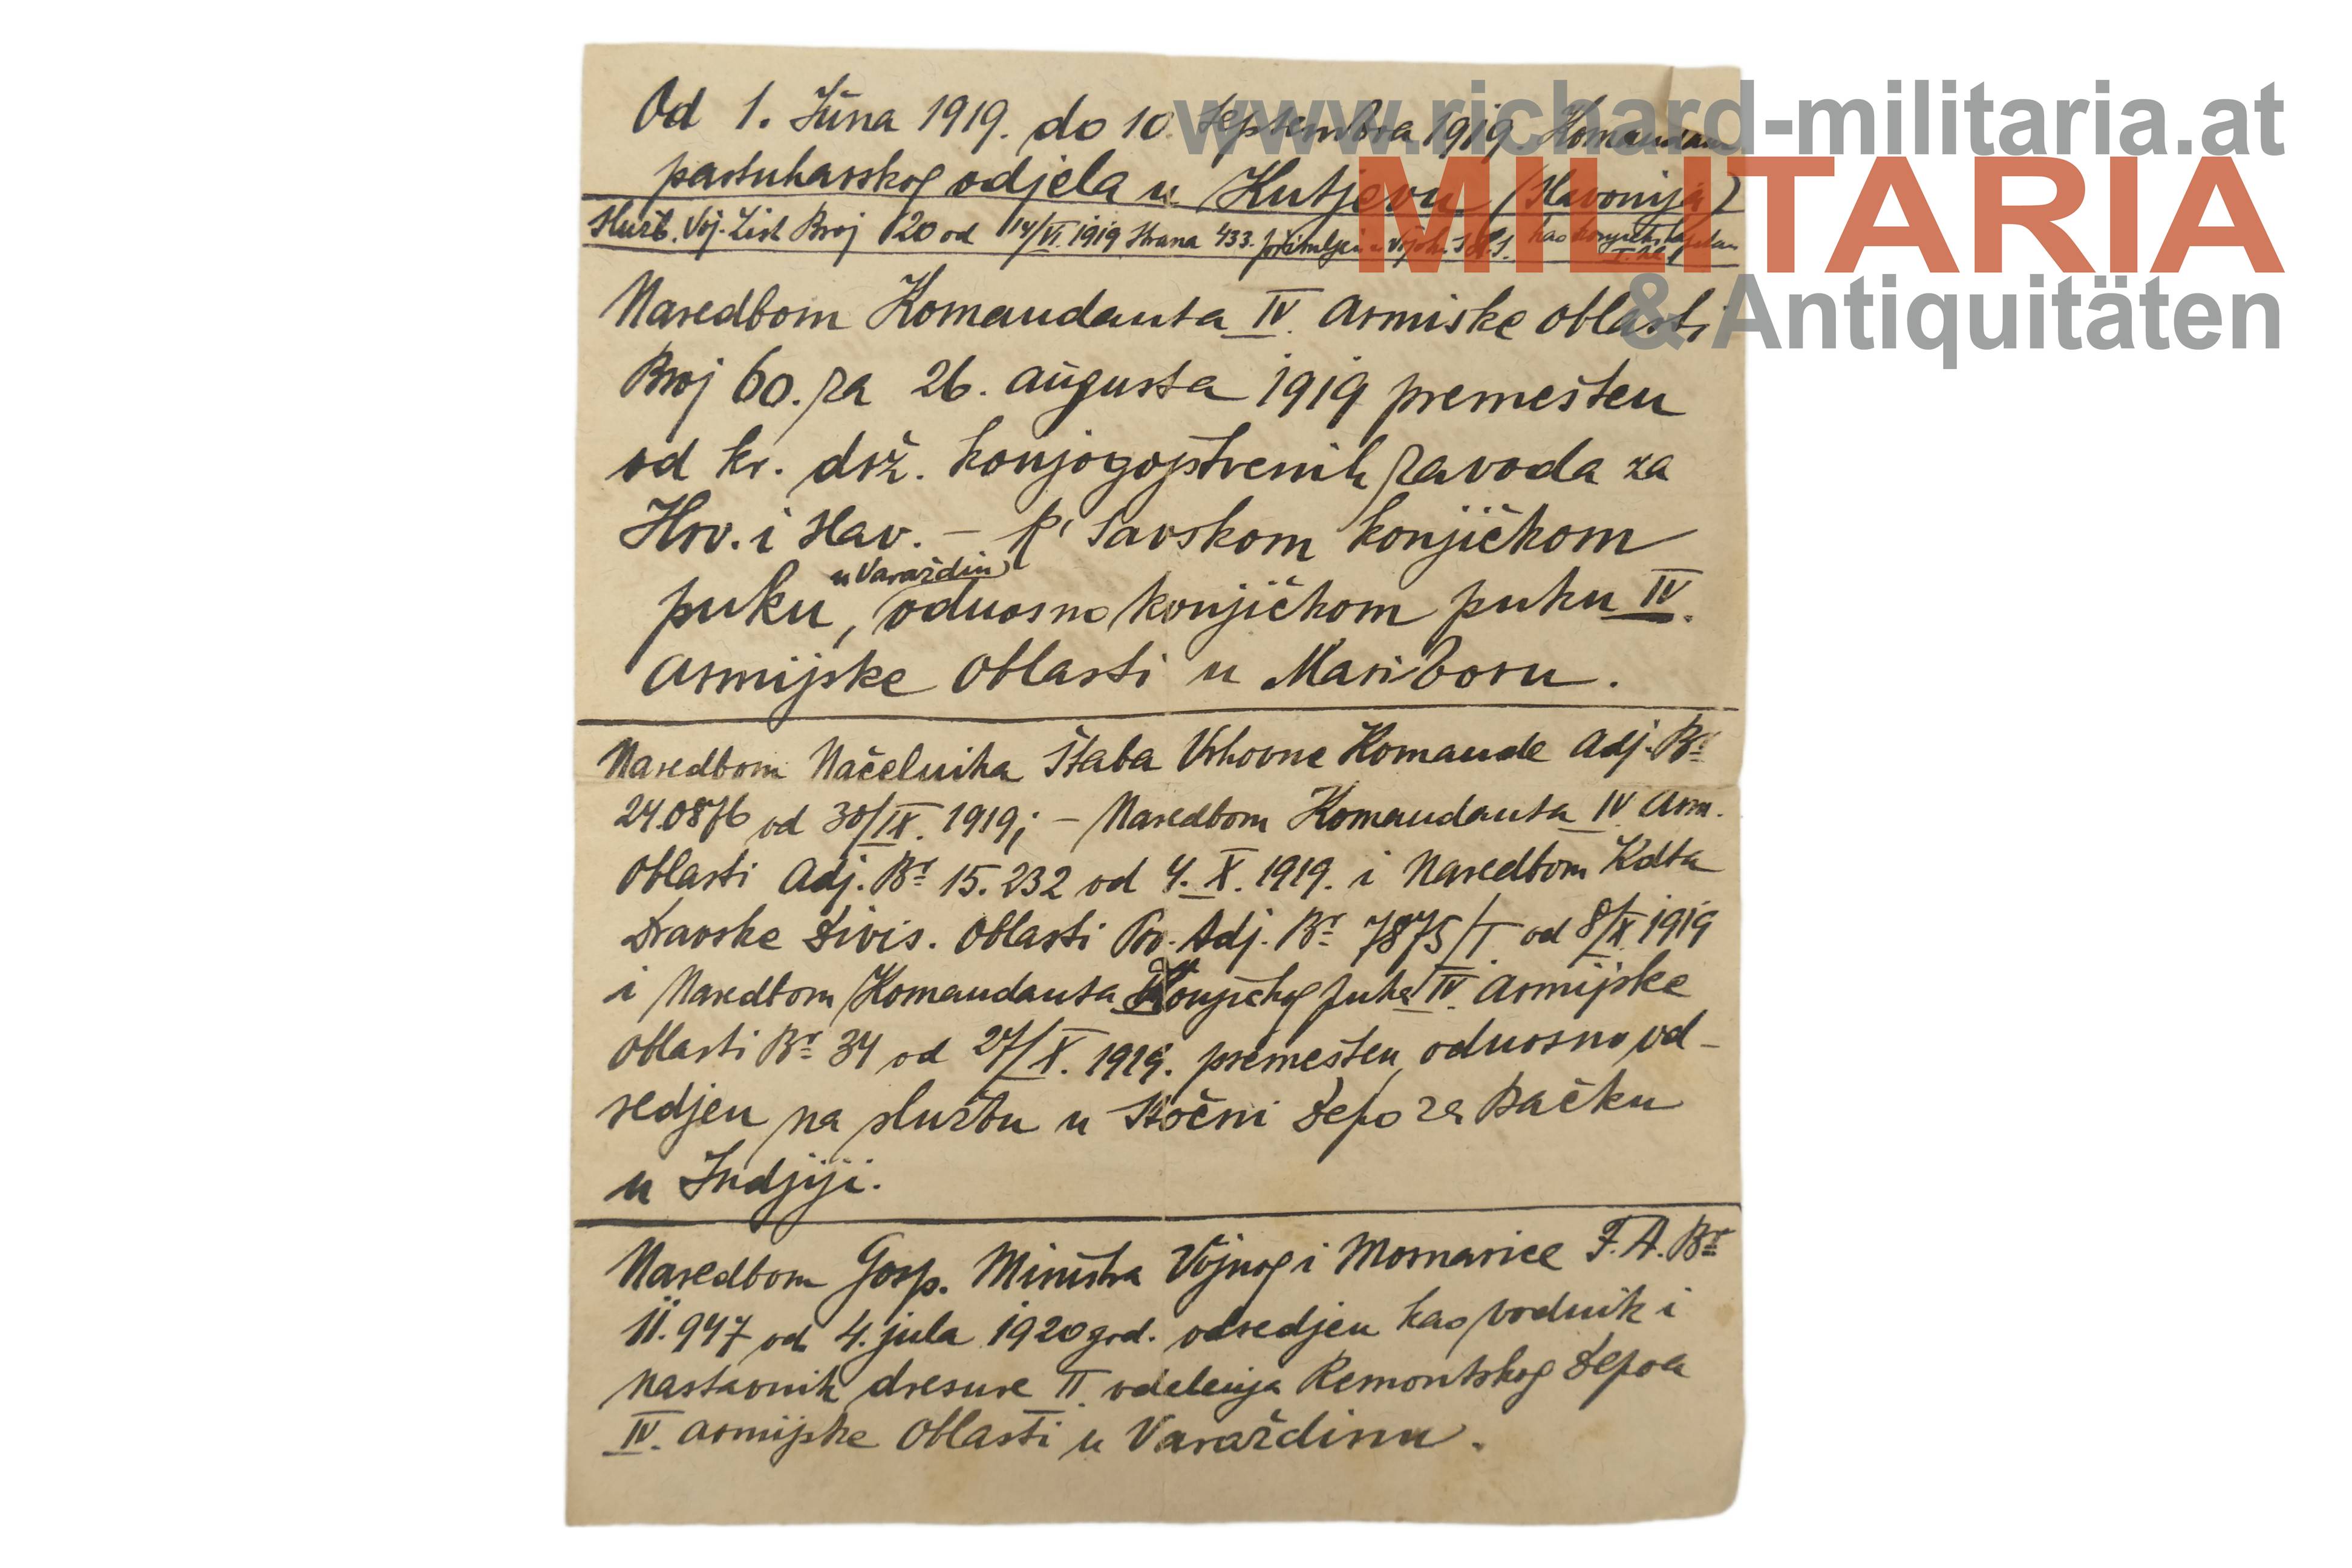 www.richard-militaria.at
MILITARIA
& Antiquitäten
Od 1. Jůna 1919. do 10. Septembra 1919. Komandant
pastuharskog odjela u Kutjevu (Slavonija)
Služb. Voj. List Broj 120 od 14/VI. 1919 Strana 433. primljen u Vojsku S.H.S. kao
Naredbom Komandanta IV. armiske oblasti
Broj 60. za 26. aůgusta 1919 premešten
od kr. drž. konjogojstvenih zavoda za
Hrv. i Slav. – k' Savskom konjičkom
u Varaždin
puku, odnosno konjičkom puku IV.
armijske oblasti u Mariboru.
Naredbom Načelnika Štaba Vrhovne Komande Adj. Br
24.0876 od 30/IX. 1919; – Naredbom Komandanta IV Arm.
Oblasti Adj. Br 15.232 od 4. X. 1919. i Naredbom Kdta
Dravske Divis. Oblasti Pov. Adj. Br 7875/I od 8/X 1919
i Naredbom Komandanta Konjičkog puka IV. Armijske
Oblasti Br 34 od 27/X. 1919. premešten, odnosno od–
redjen na službu u Stočni Depo za Bačku
u Indjiji.
Naredbom Gosp. Ministra Vojnog i Mornarice F. A. Br
11.947 od 4. jula 1920 god. odredjen kao vodnik i
nastavnik dresure II. odelenja Remontskog Depoa
IV. armijske Oblasti u Varaždinu.